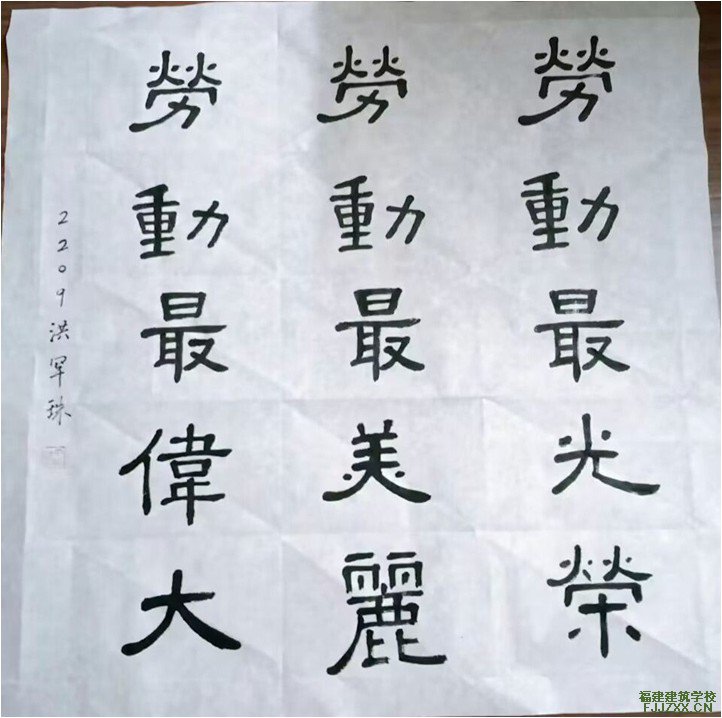 勞動最光榮
勞動最美麗
勞動最偉大
2209洪军珠
福建建筑学校
FJJZXX.CN